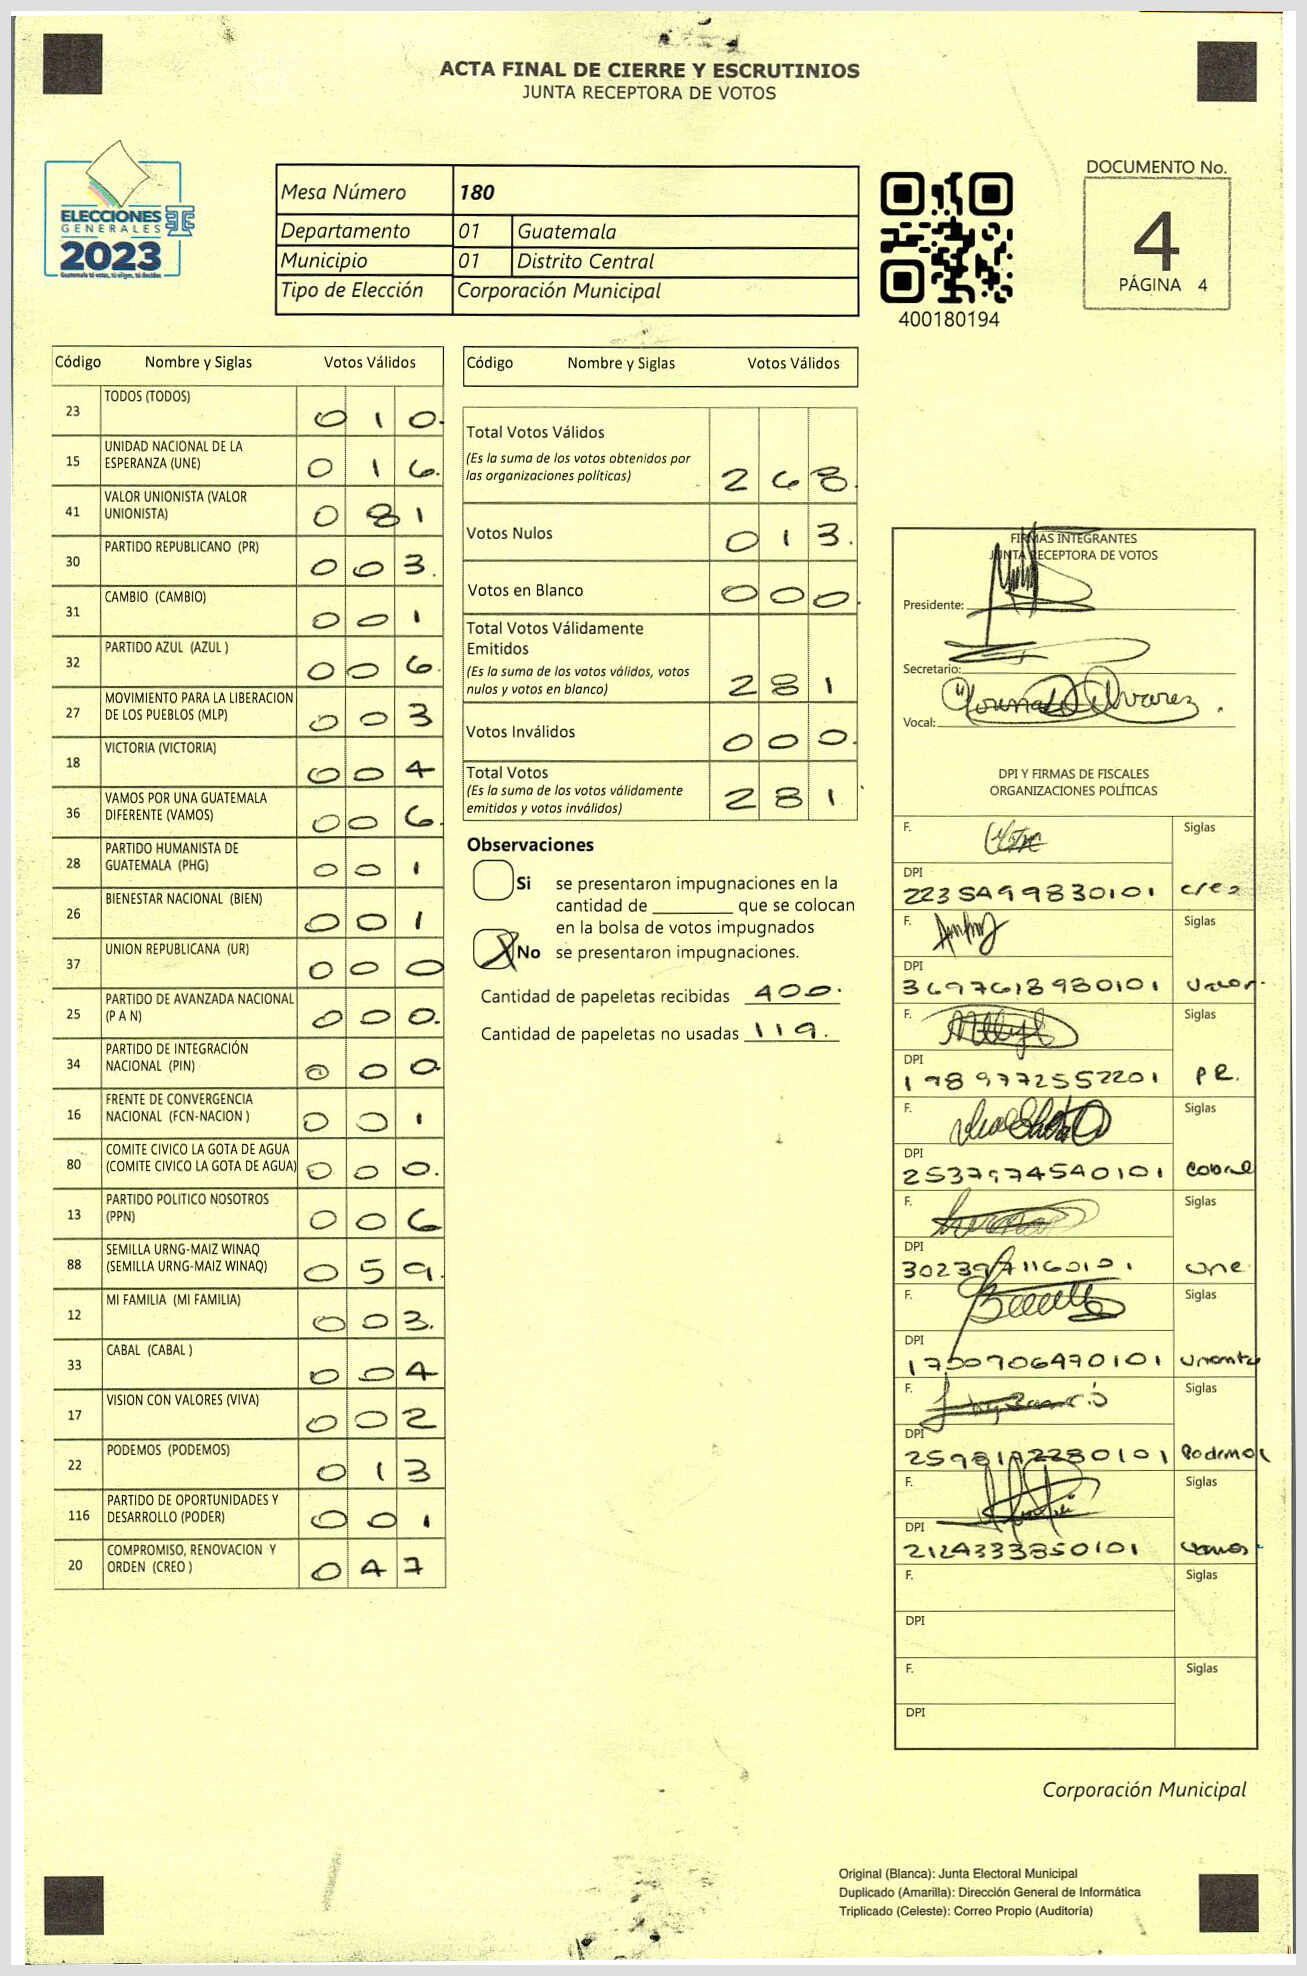 ACTA FINAL DE CIERRE Y ESCRUTINIOS
JUNTA RECEPTORA DE VOTOS
ELECCIONES
GENERALES
2023
Guatemala tú votas, tú eliges, tú decides
Mesa Número 180
Departamento 01 Guatemala
Municipio 01 Distrito Central
Tipo de Elección Corporación Municipal
400180194
DOCUMENTO No.
4
PÁGINA 4
Código Nombre y Siglas Votos Válidos
23 TODOS (TODOS) 0 1 0.
15 UNIDAD NACIONAL DE LA
ESPERANZA (UNE) 0 1 6.
41 VALOR UNIONISTA (VALOR
UNIONISTA) 0 8 1
30 PARTIDO REPUBLICANO (PR) 0 0 3.
31 CAMBIO (CAMBIO) 0 0 1
32 PARTIDO AZUL (AZUL ) 0 0 6.
27 MOVIMIENTO PARA LA LIBERACION
DE LOS PUEBLOS (MLP) 0 0 3
18 VICTORIA (VICTORIA) 0 0 4
36 VAMOS POR UNA GUATEMALA
DIFERENTE (VAMOS) 0 0 6.
28 PARTIDO HUMANISTA DE
GUATEMALA (PHG) 0 0 1
26 BIENESTAR NACIONAL (BIEN) 0 0 1
37 UNION REPUBLICANA (UR) 0 0 0
25 PARTIDO DE AVANZADA NACIONAL
(P A N) 0 0 0.
34 PARTIDO DE INTEGRACIÓN
NACIONAL (PIN) 0 0 0
16 FRENTE DE CONVERGENCIA
NACIONAL (FCN-NACION ) 0 0 1
80 COMITE CIVICO LA GOTA DE AGUA
(COMITE CIVICO LA GOTA DE AGUA) 0 0 0.
13 PARTIDO POLITICO NOSOTROS
(PPN) 0 0 6
88 SEMILLA URNG-MAIZ WINAQ
(SEMILLA URNG-MAIZ WINAQ) 0 5 9.
12 MI FAMILIA (MI FAMILIA) 0 0 3.
33 CABAL (CABAL ) 0 0 4
17 VISION CON VALORES (VIVA) 0 0 2
22 PODEMOS (PODEMOS) 0 1 3
116 PARTIDO DE OPORTUNIDADES Y
DESARROLLO (PODER) 0 0 1
20 COMPROMISO, RENOVACION Y
ORDEN (CREO ) 0 4 7
Código Nombre y Siglas Votos Válidos
Total Votos Válidos
(Es la suma de los votos obtenidos por
las organizaciones políticas) 2 6 8.
Votos Nulos 0 1 3.
Votos en Blanco 0 0 0.
Total Votos Válidamente
Emitidos
(Es la suma de los votos válidos, votos
nulos y votos en blanco) 2 8 1
Votos Inválidos 0 0 0.
Total Votos
(Es la suma de los votos válidamente
emitidos y votos inválidos) 2 8 1.
Observaciones
Si se presentaron impugnaciones en la
cantidad de ________ que se colocan
en la bolsa de votos impugnados
X No se presentaron impugnaciones.
Cantidad de papeletas recibidas 400.
Cantidad de papeletas no usadas 119.
FIRMAS INTEGRANTES
JUNTA RECEPTORA DE VOTOS
Presidente:
Secretario:
Vocal: Alvarez.
DPI Y FIRMAS DE FISCALES
ORGANIZACIONES POLÍTICAS
F. Siglas
DPI
2235499830101 creo
F. Siglas
DPI
3697618980101 Valor.
F. Siglas
DPI
1989772552201 PR.
F. Siglas
DPI
2537974540101
F. Siglas
DPI
une
F. Siglas
DPI
F. Siglas
DPI
Podemos
F. Siglas
DPI
2124333850101 vamos
F. Siglas
DPI
F. Siglas
DPI
Corporación Municipal
Original (Blanca): Junta Electoral Municipal
Duplicado (Amarilla): Dirección General de Informática
Triplicado (Celeste): Correo Propio (Auditoría)